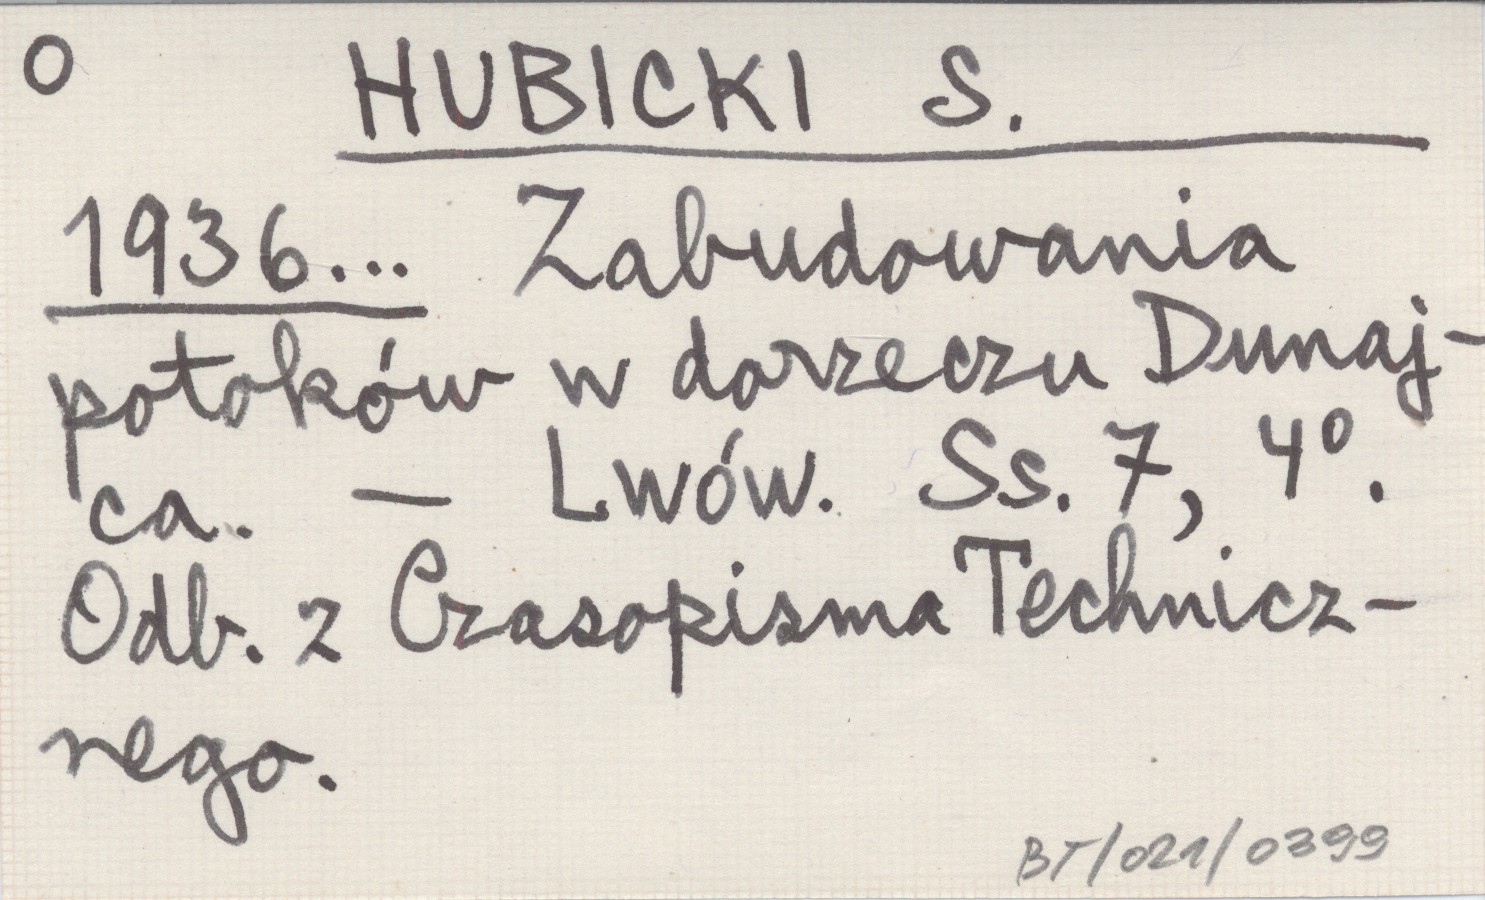 O HUBICKI S.
1936... Zabudowania
potoków w dorzeczu Dunaj-
ca. — Lwów. Ss. 7, 4º.
Odb. z Czasopisma Technicz-
nego.
BT/021/0399